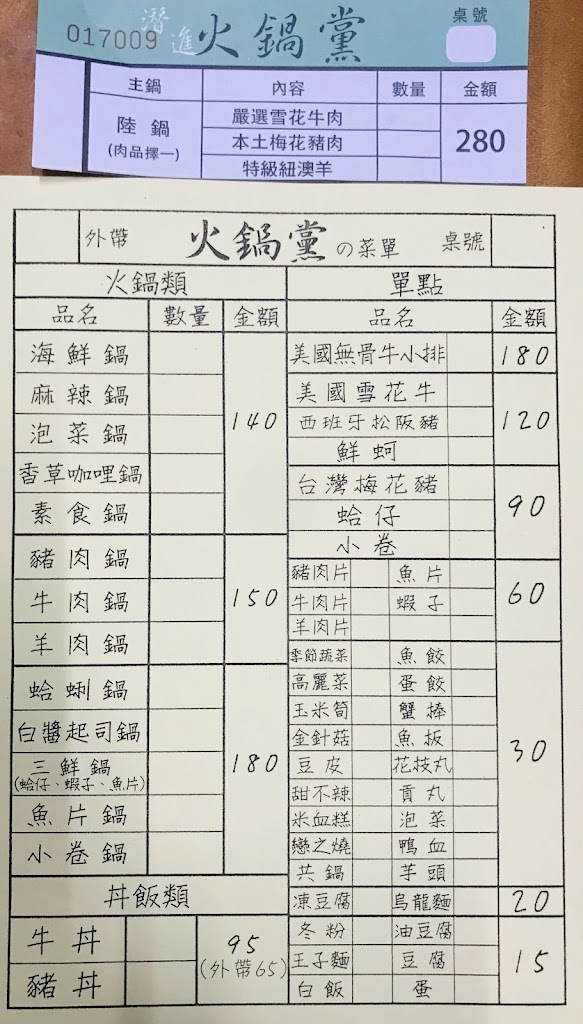 017009 潛進火鍋黨 桌號
主鍋 內容 數量 金額
陸鍋 嚴選雪花牛肉 280
(肉品擇一) 本土梅花豬肉
特級紐澳羊
外帶 火鍋黨の菜單 桌號
火鍋類 單點
品名 數量 金額 品名 金額
海鮮鍋 140 美國無骨牛小排 180
麻辣鍋 美國雪花牛 120
泡菜鍋 西班牙松阪豬
鮮蚵
香草咖哩鍋 台灣梅花豬 90
素食鍋 蛤仔
小卷
豬肉鍋 150 豬肉片 魚片 60
牛肉鍋 牛肉片 蝦子
羊肉鍋 羊肉片
蛤蜊鍋 180 季節蔬菜 魚餃 30
白醬起司鍋 高麗菜 蛋餃
三鮮鍋 玉米筍 蟹棒
(蛤仔、蝦子、魚片) 金針菇 魚板
魚片鍋 豆皮 花枝丸
小卷鍋 甜不辣 貢丸
米血糕 泡菜
戀之燒 鴨血
共鍋 芋頭
丼飯類 凍豆腐 烏龍麵 20
牛丼 95 冬粉 油豆腐 15
豬丼 (外帶65) 王子麵 豆腐
白飯 蛋